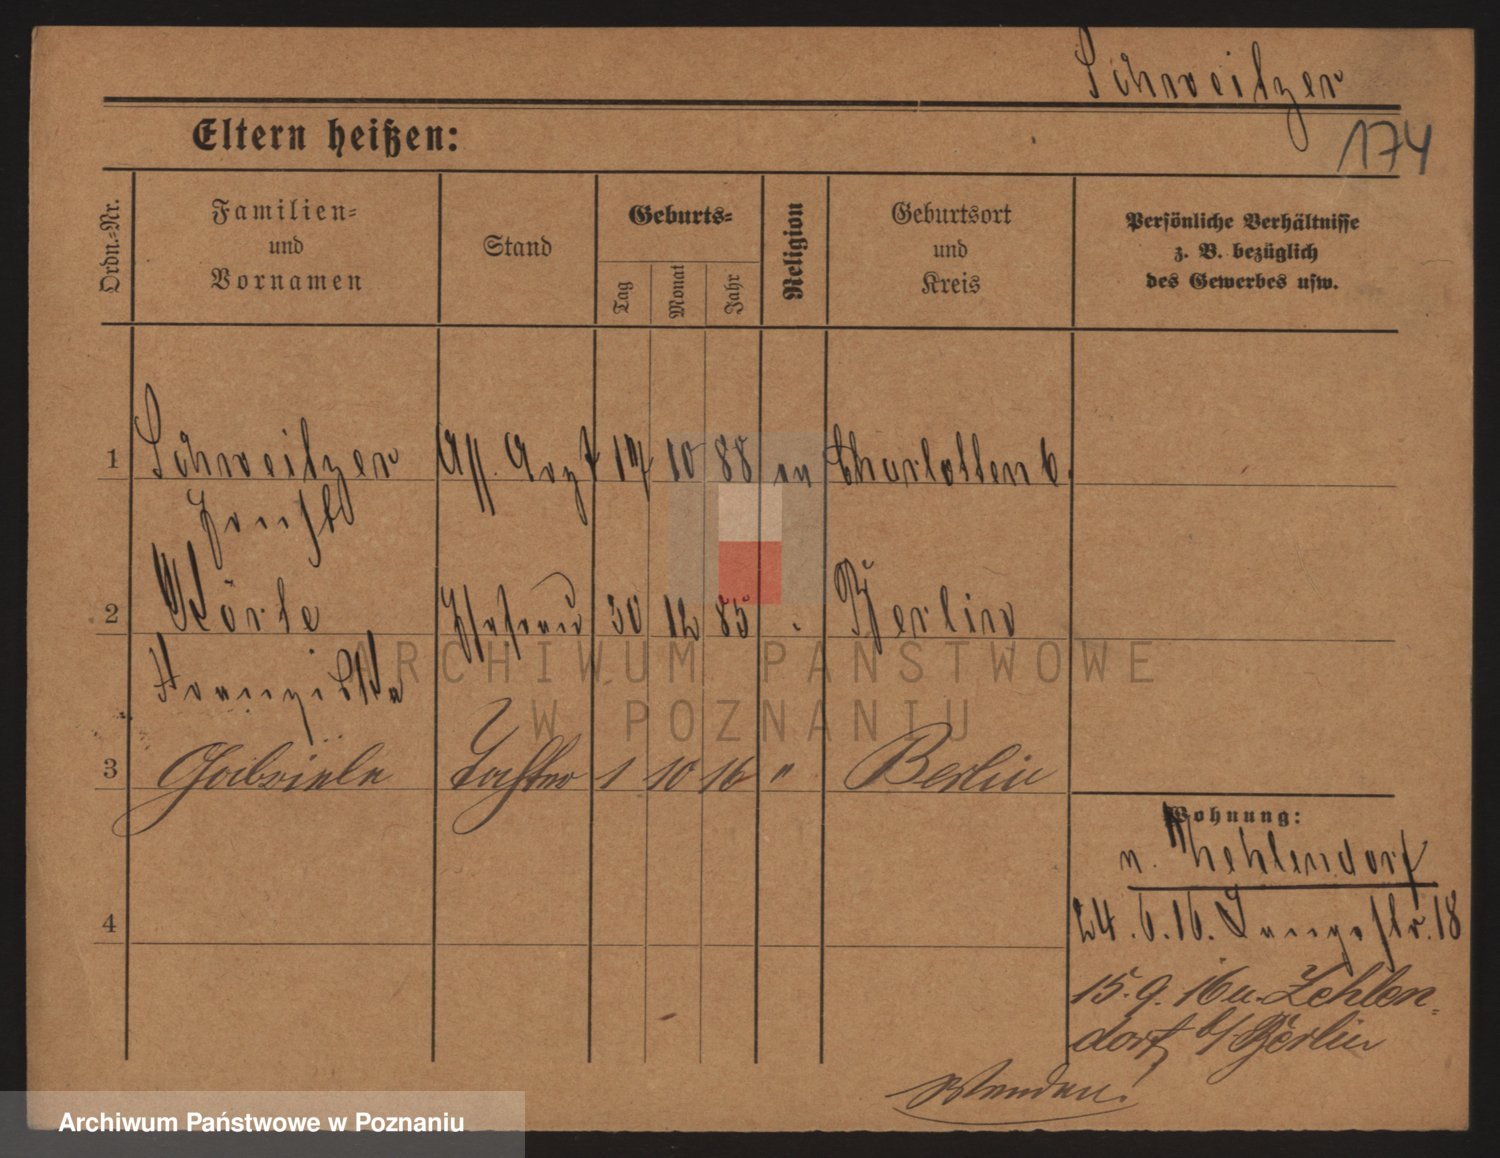 Schweitzer
174
Eltern heißen:
Ordn.-Nr.
Familien-
und
Vornamen
Stand
Geburts-
Tag
Monat
Jahr
Religion
Geburtsort
und
Kreis
Persönliche Verhältnisse
z. B. bezüglich
des Gewerbes usw.
1 Schweitzer Ass. Arzt 17 10 88 ev Charlottenb.
Ernst
2 Körte Ehefrau 30 12 85 " Berlin
Franziska
3 Gabriele Tochter 1 10 16 " Berlin
4
Wohnung:
n. Zehlendorf
24.6.16. Langestr. 18
15.9.16 n. Zehlen-
dorf b/Berlin
Wenden!
ARCHIWUM PAŃSTWOWE
W POZNANIU
Archiwum Państwowe w Poznaniu